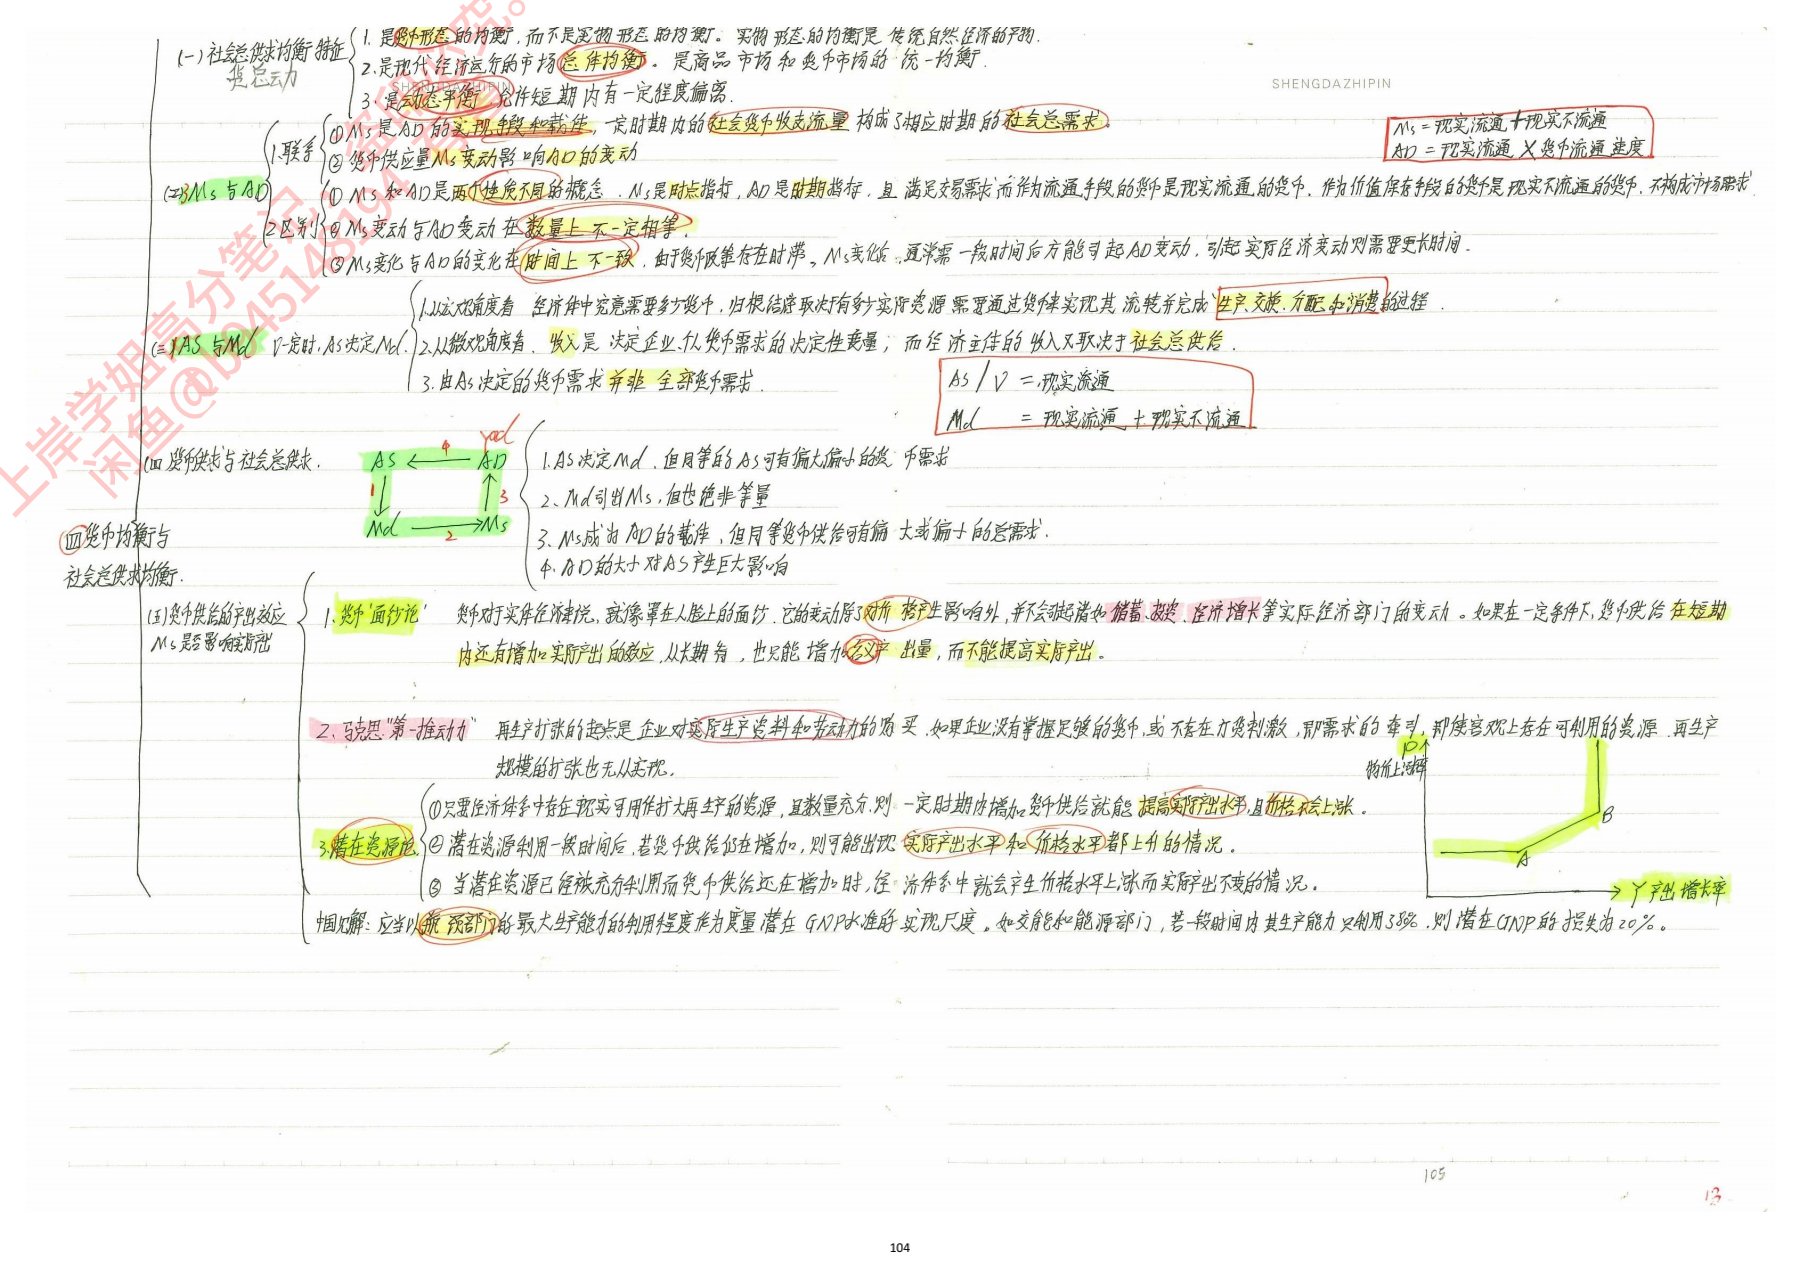 (一)社会总供求均衡特征
货总动力
1. 是货币形态的均衡,而不是实物形态的均衡。实物形态的均衡是传统自然经济的产物.
2. 是现代经济运行的市场总体均衡。是商品市场和货币市场的统一均衡.
3. 是动态平衡,允许短期内有一定程度偏离.
SHENGDAZHIPIN
SHENGDAZHIPIN
(二)Ms与AD
1.联系
① Ms是AD的实现手段和载体,一定时期内的社会货币收支流量构成了相应时期的社会总需求。
② 货币供应量Ms变动影响AD的变动
Ms = 现实流通 + 现实不流通
AD = 现实流通 × 货币流通速度
2.区别
① Ms和AD是两个性质不同的概念.Ms是时点指标,AD是时期指标,且满足交易需求而作为流通手段的货币是现实流通的货币.作为价值保存手段的货币是现实不流通的货币.不构成市场需求.
② Ms变动与AD变动在数量上不一定相等.
③ Ms变化与AD的变化在时间上不一致.由于货币政策存在时滞。Ms变化后,通常需一段时间后方能引起AD变动,引起实际经济变动则需要更长时间.
(三)AS与Md
V一定时,AS决定Md.
1.从宏观角度看 经济体中究竟需要多少货币,归根结底取决于有多少实际资源需要通过货币来实现其流转并完成生产、交换、分配和消费的过程.
2.从微观角度看.收入是决定企业、个人货币需求的决定性变量;而经济主体的收入又取决于社会总供给.
3.由As决定的货币需求并非全部货币需求.
AS/V = 现实流通
Md = 现实流通 + 现实不流通
(四)货币供求与社会总供求.
AS
4
AD
Yad
1
3
Md
2
Ms
1.AS决定Md.但同等的AS可有偏大偏小的货币需求
2、Md引出Ms,但也绝非等量
3.Ms成为AD的载体,但同等货币供给可有偏大或偏小的总需求.
4.AD的大小对AS产生巨大影响
四货币均衡与
社会总供求均衡.
(五)货币供给的产出效应
Ms是否影响实际产出
1、货币"面纱论"
货币对于实体经济来说,就像罩在人脸上的面纱.它的变动除了对价格产生影响外,并不会引起诸如储蓄、投资、经济增长等实际经济部门的变动。如果在一定条件下,货币供给在短期
内还有增加实际产出的效应,从长期看,也只能增加名义产出量,而不能提高实际产出。
2、马克思"第一推动力"
再生产扩张的起点是企业对实际生产资料和劳动力的购买.如果企业没有掌握足够的货币,或不存在力货刺激,即需求的牵引,即使客观上存在可利用的资源.再生产
规模的扩张也无从实现.
3.潜在资源论
①只要经济体系中存在现实可用作扩大再生产的资源,且数量充分.则一定时期内增加货币供给就能提高实际产出水平,且价格不会上涨.
②潜在资源利用一段时间后,若货币供给仍在增加,则可能出现实际产出水平和价格水平都上升的情况。
③ 当潜在资源已经被充分利用而货币供给还在增加时,经济体系中就会产生价格水平上涨而实际产出不变的情况。
P
物价上涨率
A
B
Y 产出增长率
中国见解:应当以瓶颈部门的最大生产能力的利用程度作为度量潜在GNP水准的实现尺度。如交能和能源部门,若一段时间内其生产能力只利用38%.则潜在GNP的损失为20%。
105
13
104
上岸学姐高分笔记